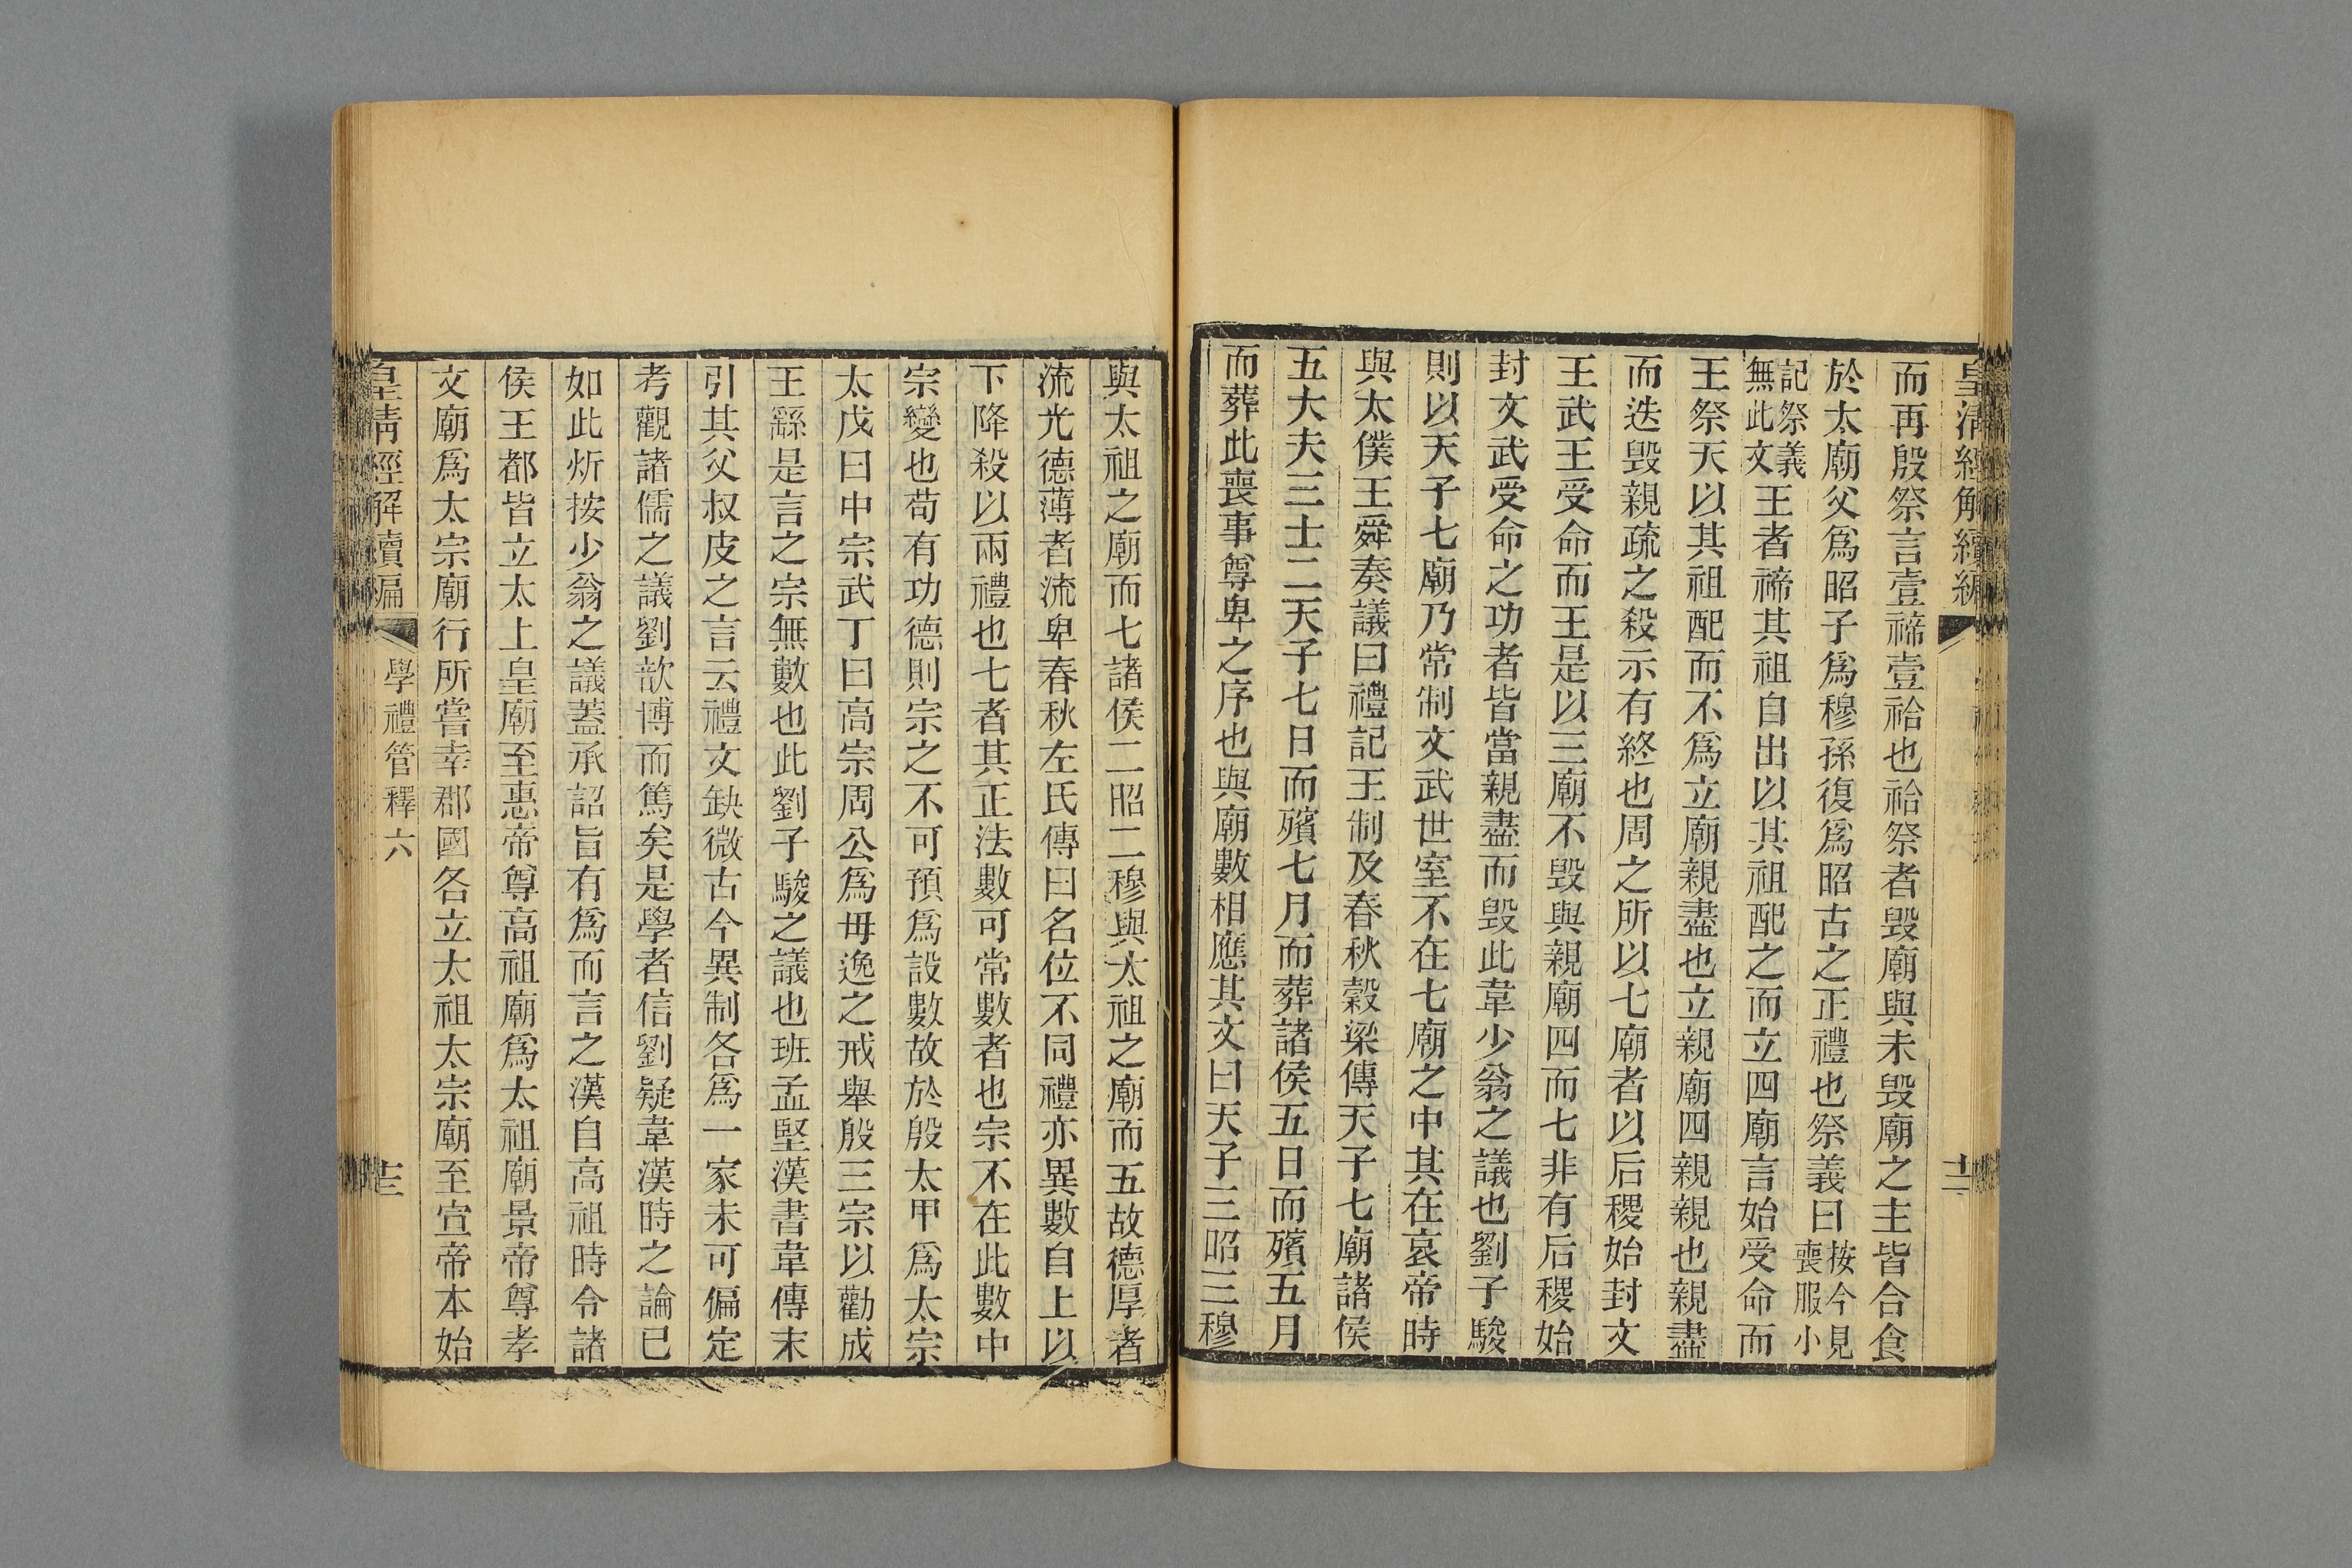 皇清經解續編
十二
而再殷祭言壹禘壹祫也祫祭者毁廟與未毁廟之主皆合食
於太廟父爲昭子爲穆孫復爲昭古之正禮也祭義曰按今見喪服小
記祭義無此文王者禘其祖自出以其祖配之而立四廟言始受命而
王祭天以其祖配而不爲立廟親盡也立親廟四親親也親盡
而迭毁親疏之殺示有終也周之所以七廟者以后稷始封文
王武王受命而王是以三廟不毁與親廟四而七非有后稷始
封文武受命之功者皆當親盡而毁此韋少翁之議也劉子駿
則以天子七廟乃常制文武世室不在七廟之中其在哀帝時
與太僕王舜奏議曰禮記王制及春秋穀梁傳天子七廟諸侯
五大夫三士二天子七日而殯七月而葬諸侯五日而殯五月
而葬此喪事尊卑之序也與廟數相應其文曰天子三昭三穆
與太祖之廟而七諸侯二昭二穆與太祖之廟而五故德厚者
流光德薄者流卑春秋左氏傳曰名位不同禮亦異數自上以
下降殺以兩禮也七者其正法數可常數者也宗不在此數中
宗變也苟有功德則宗之不可預爲設數故於殷太甲爲太宗
太戊曰中宗武丁曰高宗周公爲毋逸之戒舉殷三宗以勸成
王繇是言之宗無數也此劉子駿之議也班孟堅漢書韋傳末
引其父叔皮之言云禮文缺微古今異制各爲一家未可偏定
考觀諸儒之議劉歆博而篤矣是學者信劉疑韋漢時之論已
如此炘按少翁之議蓋承詔旨有爲而言之漢自高祖時令諸
侯王都皆立太上皇廟至惠帝尊高祖廟爲太祖廟景帝尊孝
文廟爲太宗廟行所嘗幸郡國各立太祖太宗廟至宣帝本始
皇清經解續編
學禮管釋六
十三